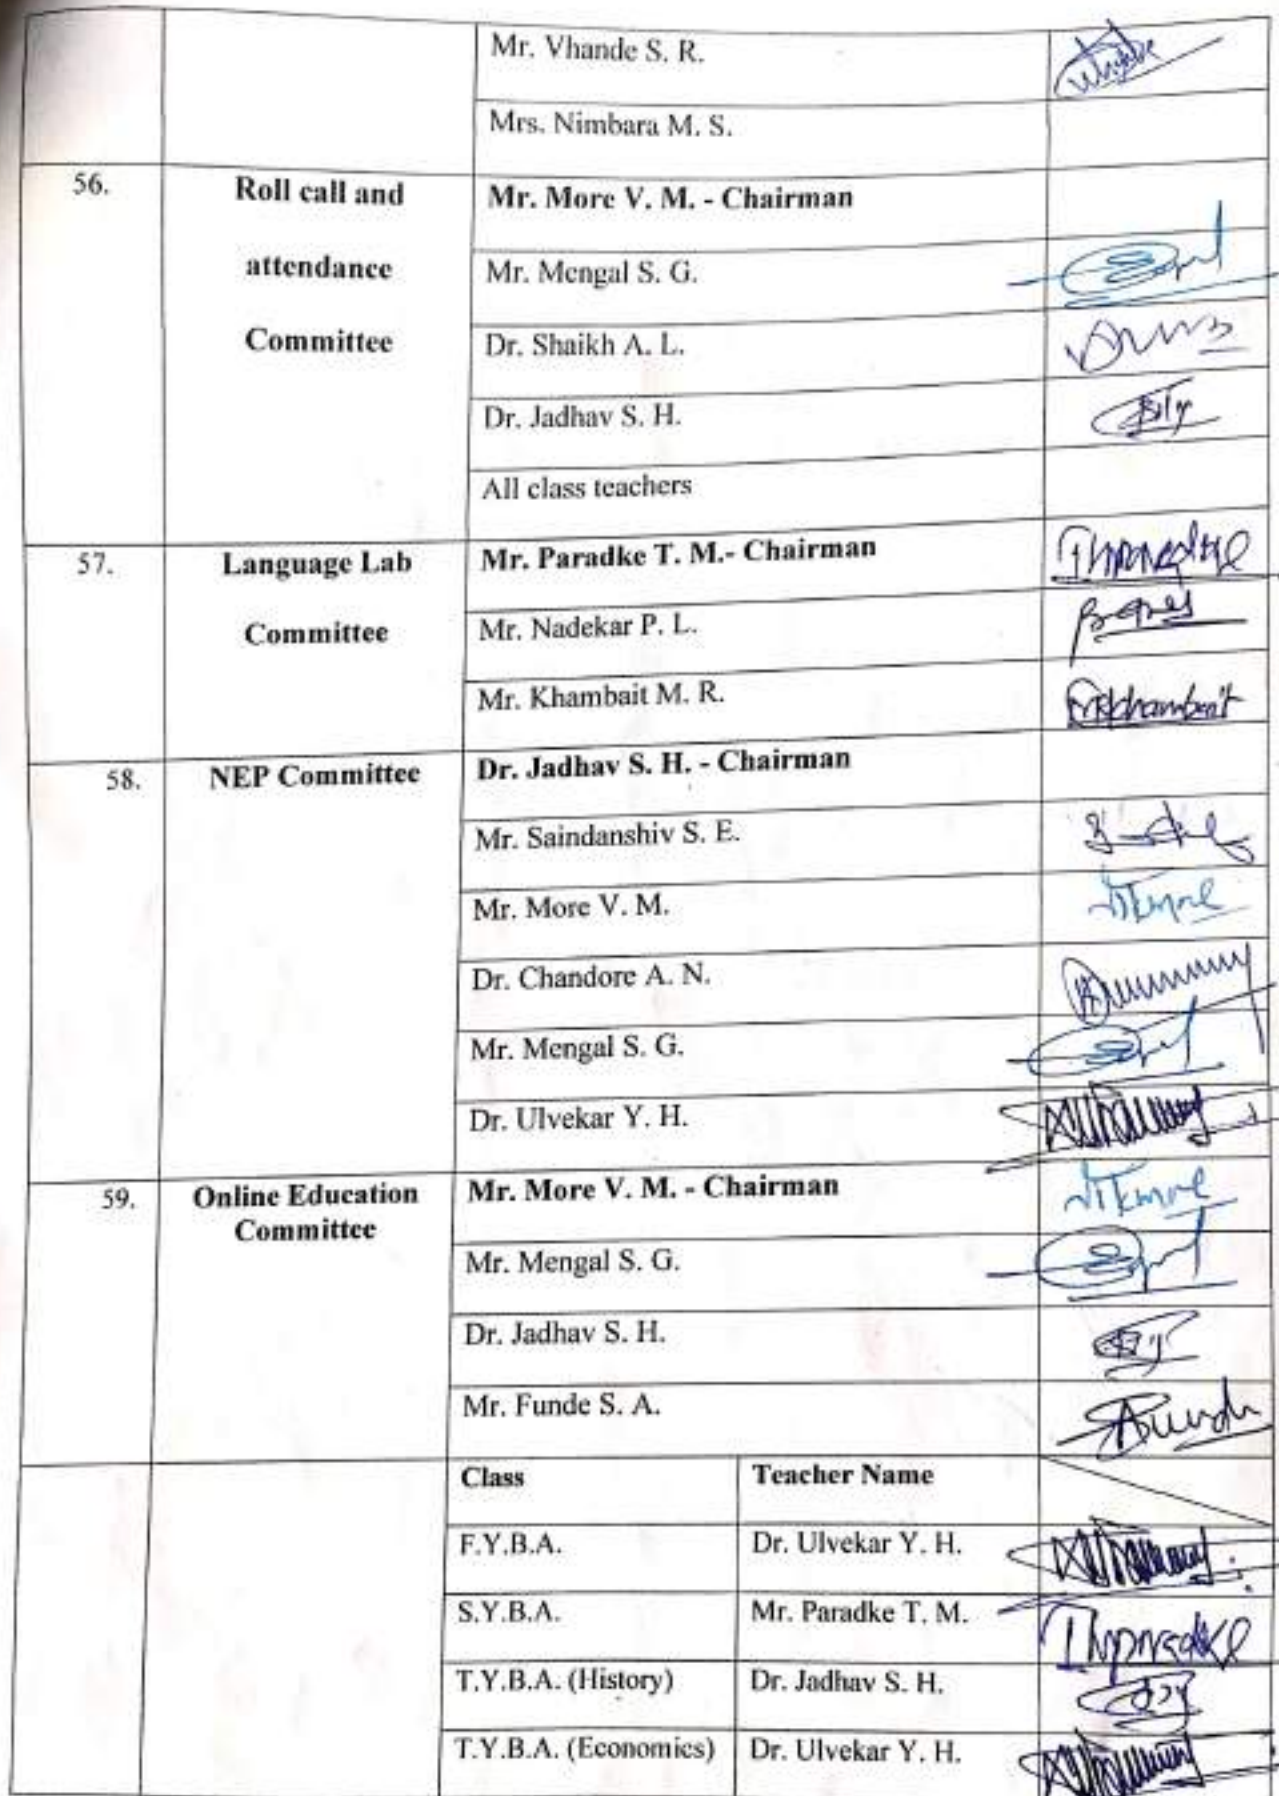 Mr. Vhande S. R.
Mrs. Nimbara M. S.
56. Roll call and attendance Committee Mr. More V. M. - Chairman
Mr. Mengal S. G.
Dr. Shaikh A. L.
Dr. Jadhav S. H.
All class teachers
57. Language Lab Committee Mr. Paradke T. M.- Chairman
Mr. Nadekar P. L.
Mr. Khambait M. R.
58. NEP Committee Dr. Jadhav S. H. - Chairman
Mr. Saindanshiv S. E.
Mr. More V. M.
Dr. Chandore A. N.
Mr. Mengal S. G.
Dr. Ulvekar Y. H.
59. Online Education Committee Mr. More V. M. - Chairman
Mr. Mengal S. G.
Dr. Jadhav S. H.
Mr. Funde S. A.
Class Teacher Name
F.Y.B.A. Dr. Ulvekar Y. H.
S.Y.B.A. Mr. Paradke T. M.
T.Y.B.A. (History) Dr. Jadhav S. H.
T.Y.B.A. (Economics) Dr. Ulvekar Y. H.